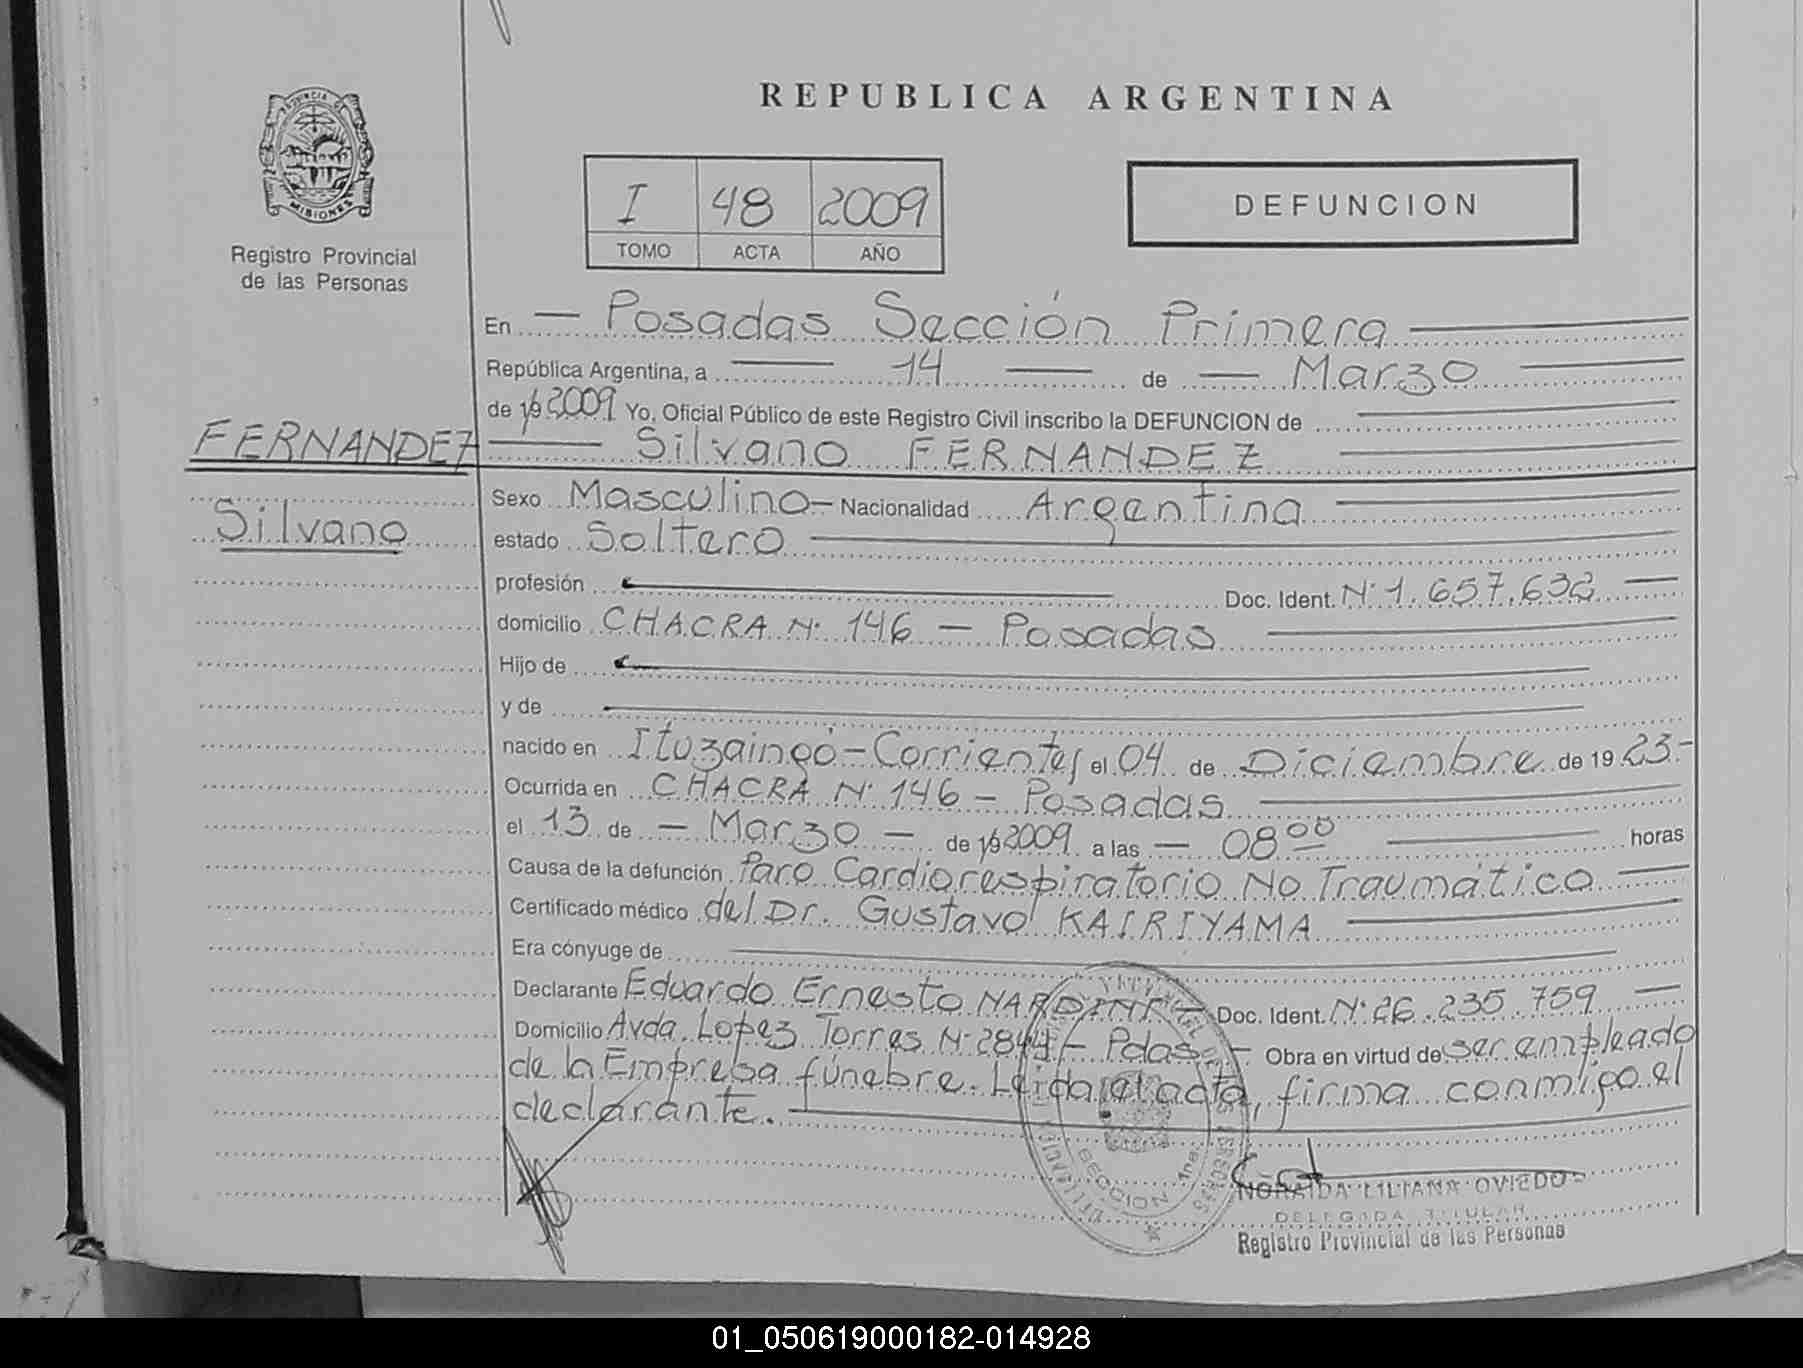 REPUBLICA ARGENTINA
PROVINCIA DE
MISIONES
Registro Provincial
de las Personas
I 48 2009
TOMO ACTA AÑO
DEFUNCION
En — Posadas Sección Primera
República Argentina, a — 14 — de — Marzo
de 19 2009 Yo, Oficial Público de este Registro Civil inscribo la DEFUNCION de
FERNANDEZ
Silvano FERNANDEZ
Silvano
Sexo Masculino — Nacionalidad Argentina
estado Soltero
profesión Doc. Ident. Nº 1.657.632
domicilio CHACRA Nº 146 — Posadas
Hijo de
y de
nacido en Ituzaingó - Corrientes el 04 de Diciembre de 19 23-
Ocurrida en CHACRA Nº 146 — Posadas
el 13 de — Marzo — de 19 2009 a las — 08 00 horas
Causa de la defunción Paro Cardiorespiratorio No Traumático
Certificado médico del Dr. Gustavo KAIRIYAMA
Era cónyuge de
Declarante Eduardo Ernesto NARDINI — Doc. Ident. Nº 26.235.759
Domicilio Avda. Lopez Torres Nº 2844 — Pdas — Obra en virtud de ser empleado
de la Empresa fúnebre. Leida el acta, firma conmigo el
declarante.
SECCION 1ra.
NORAIDA LILIANA OVIEDO
DELEGADA TITULAR
Registro Provincial de las Personas
01_050619000182-014928